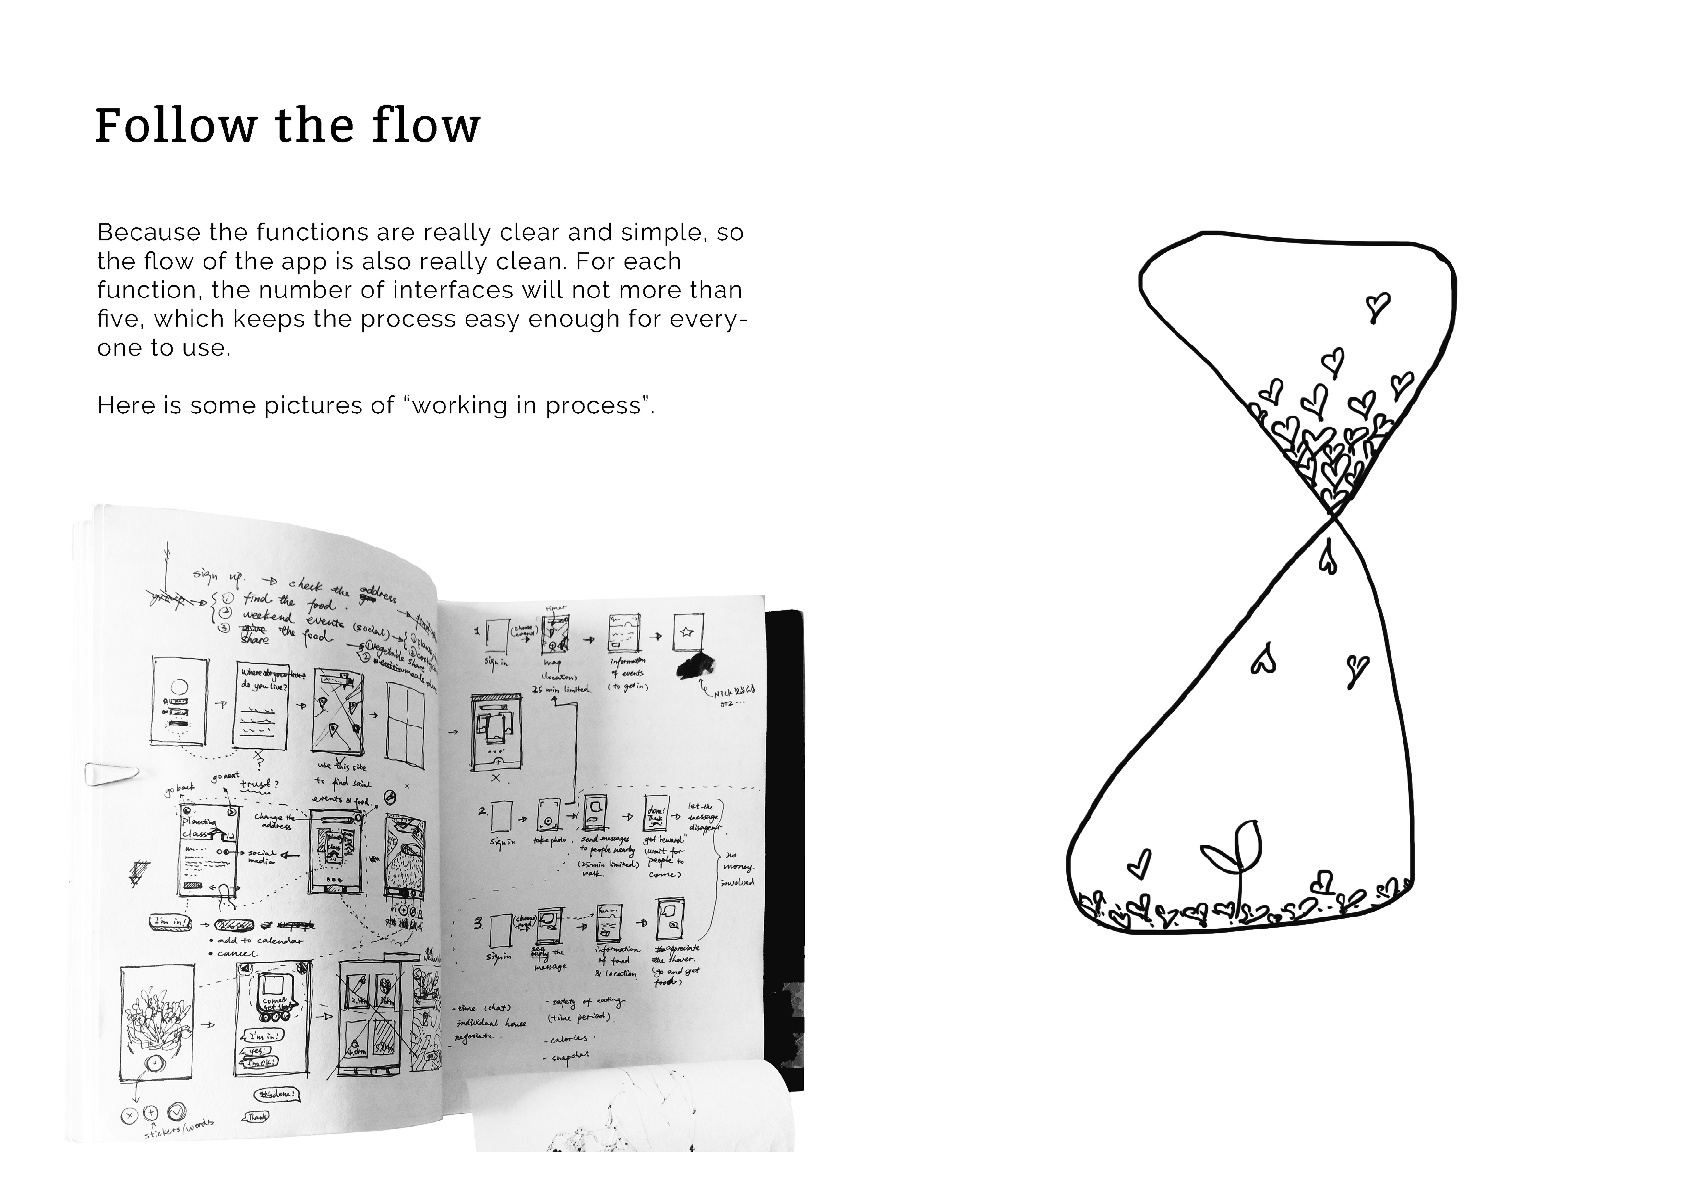 Follow the flow
Because the functions are really clear and simple, so
the flow of the app is also really clean. For each
function, the number of interfaces will not more than
five, which keeps the process easy enough for every-
one to use.
Here is some pictures of “working in process”.
sign up. → check the address
① find the food.
② weekend events (social)
③ share the food
do you live?
use this site
to find
events & food
go back
go next
trust?
change the
address
planting
class
social
media
I'm in!
• add to calendar
• cancel
I'm in!
yes
Thanks
stickers/words
1.
sign in
map
(location)
25 min limited
information
of events
(to get in)
2.
sign in
take photo
send messages
to people nearby
(25min limited)
get reward
wait for
people to
come)
let the
message
disappear
no
money
involved
3.
sign in
the
message
information
of food
& location
appreciate
the sharer.
(go and get
food)
- time (chat)
individual house
negotiate
- safety of eating
(time period)
- calories.
- snapchat